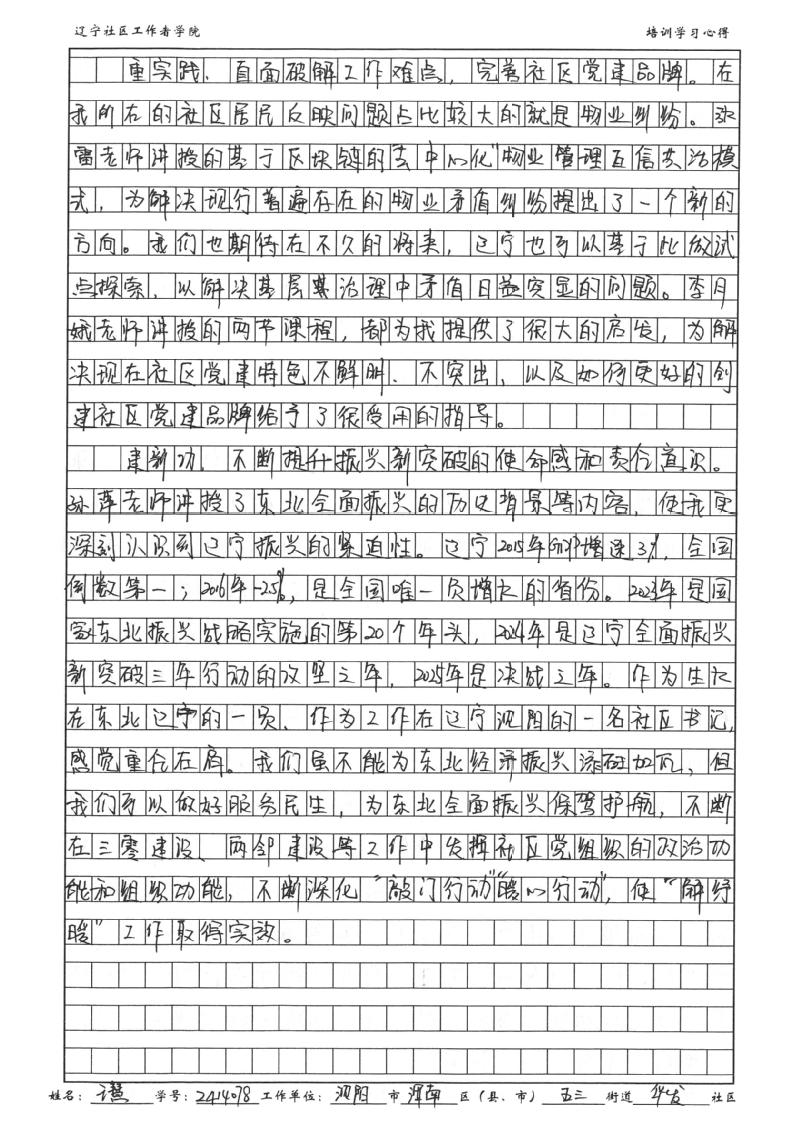 辽宁社区工作者学院 培训学习心得
重实践、直面破解工作难点,完善社区党建品牌。在
我所在的社区居民反映问题占比较大的就是物业纠纷。张
雷老师讲授的基于区块链的去中心化“物业管理互信共治模
式,为解决现行普遍存在的物业矛盾纠纷提出了一个新的
方向。我们也期待在不久的将来,辽宁也可以基于此做试
点探索,以解决基层治理中矛盾日益突显的问题。李月
娥老师讲授的两节课程,都为我提供了很大的启发,为解
决现在社区党建特色不鲜明、不突出、以及如何更好的创
建社区党建品牌给予了很受用的指导。
建新功、不断提升振兴新突破的使命感和责任意识。
孙萍老师讲授了东北全面振兴的历史背景等内容,使我更
深刻认识到辽宁振兴的紧迫性。辽宁2015年GDP增速3%,全国
倒数第一;2016年-2.5%,是全国唯一负增长的省份。2023年是国
家东北振兴战略实施的第20个年头,2024年是辽宁全面振兴
新突破三年行动的攻坚之年,2025年是决战之年。作为生長
在东北辽宁的一员、作为工作在辽宁沈阳的一名社区书记,
感觉重任在肩。我们虽不能为东北经济振兴添砖加瓦,但
我们可以做好服务民生,为东北全面振兴保驾护航,不断
在三零建设、两邻建设等工作中发挥社区党组织的政治功
能和组织功能,不断深化“敲门行动”“暖心行动”,使“解纾
暖”工作取得实效。
姓名: 学号:2414078 工作单位:沈阳市浑南区(县、市)五三街道华发社区